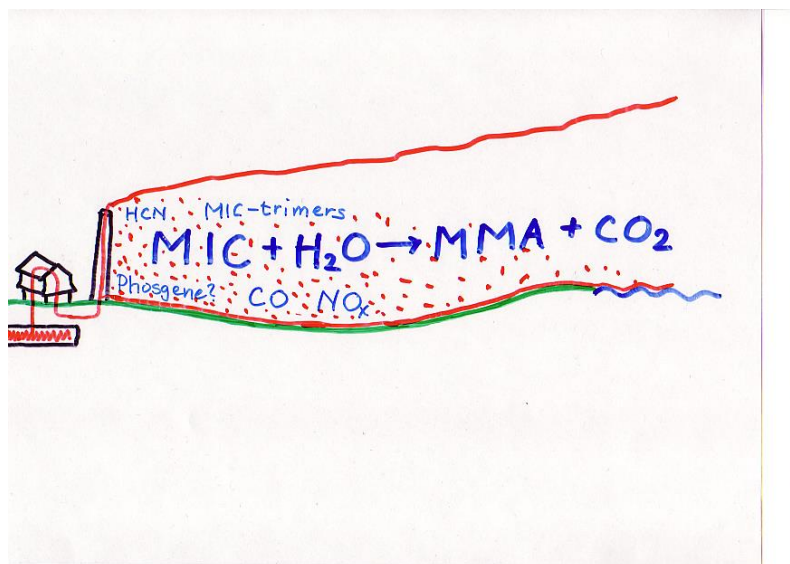 HCN MIC-trimers
MIC + H₂O → MMA + CO₂
Phosgene?
CO NOₓ